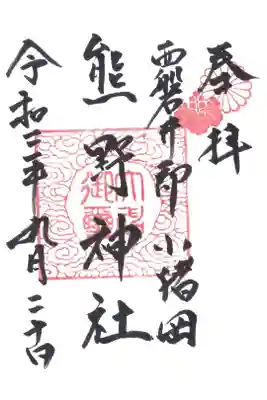 奉拝
西磐井郡 小猪岡
熊野神社
令和三年 九月二十日